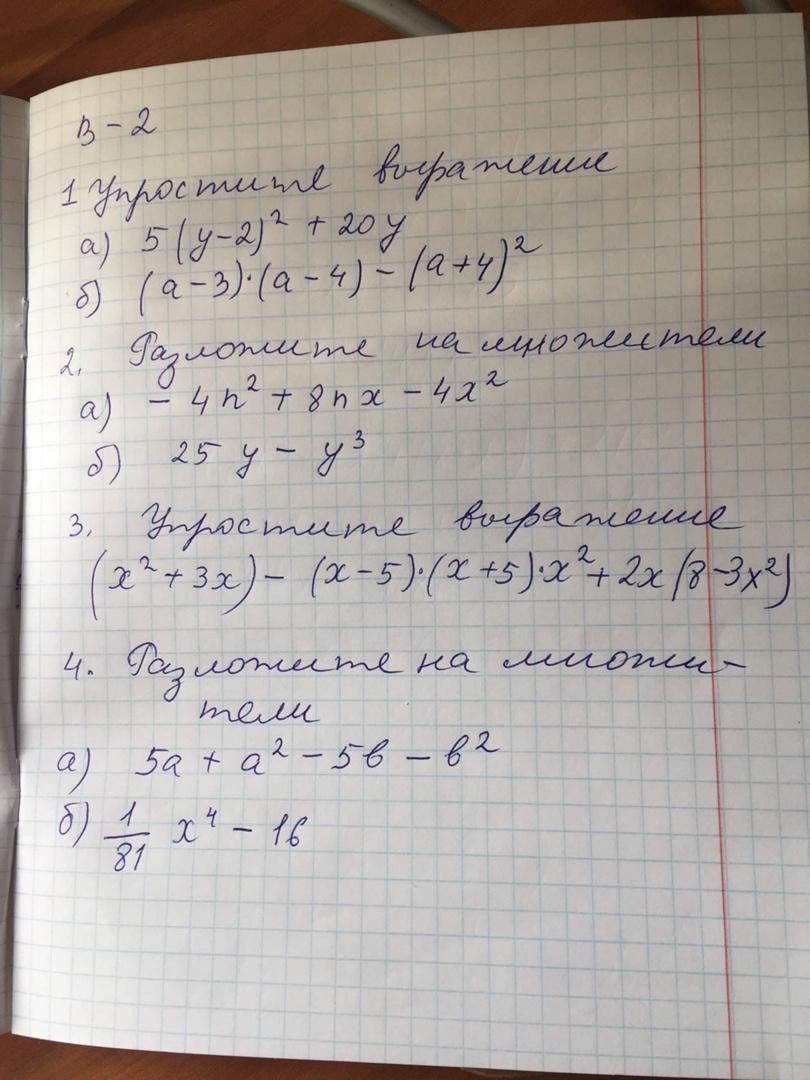 В-2
1 Упростите выражение
а) 5(y-2)² + 20y
б) (a-3)·(a-4) - (a+4)²
2. Разложите на множители
а) - 4n² + 8nx - 4x²
б) 25y - y³
3. Упростите выражение
(x² + 3x) - (x-5)·(x+5)·x² + 2x(8-3x²)
4. Разложите на множи-
тели
а) 5a + a² - 5в - в²
б) 1/81 x⁴ - 16